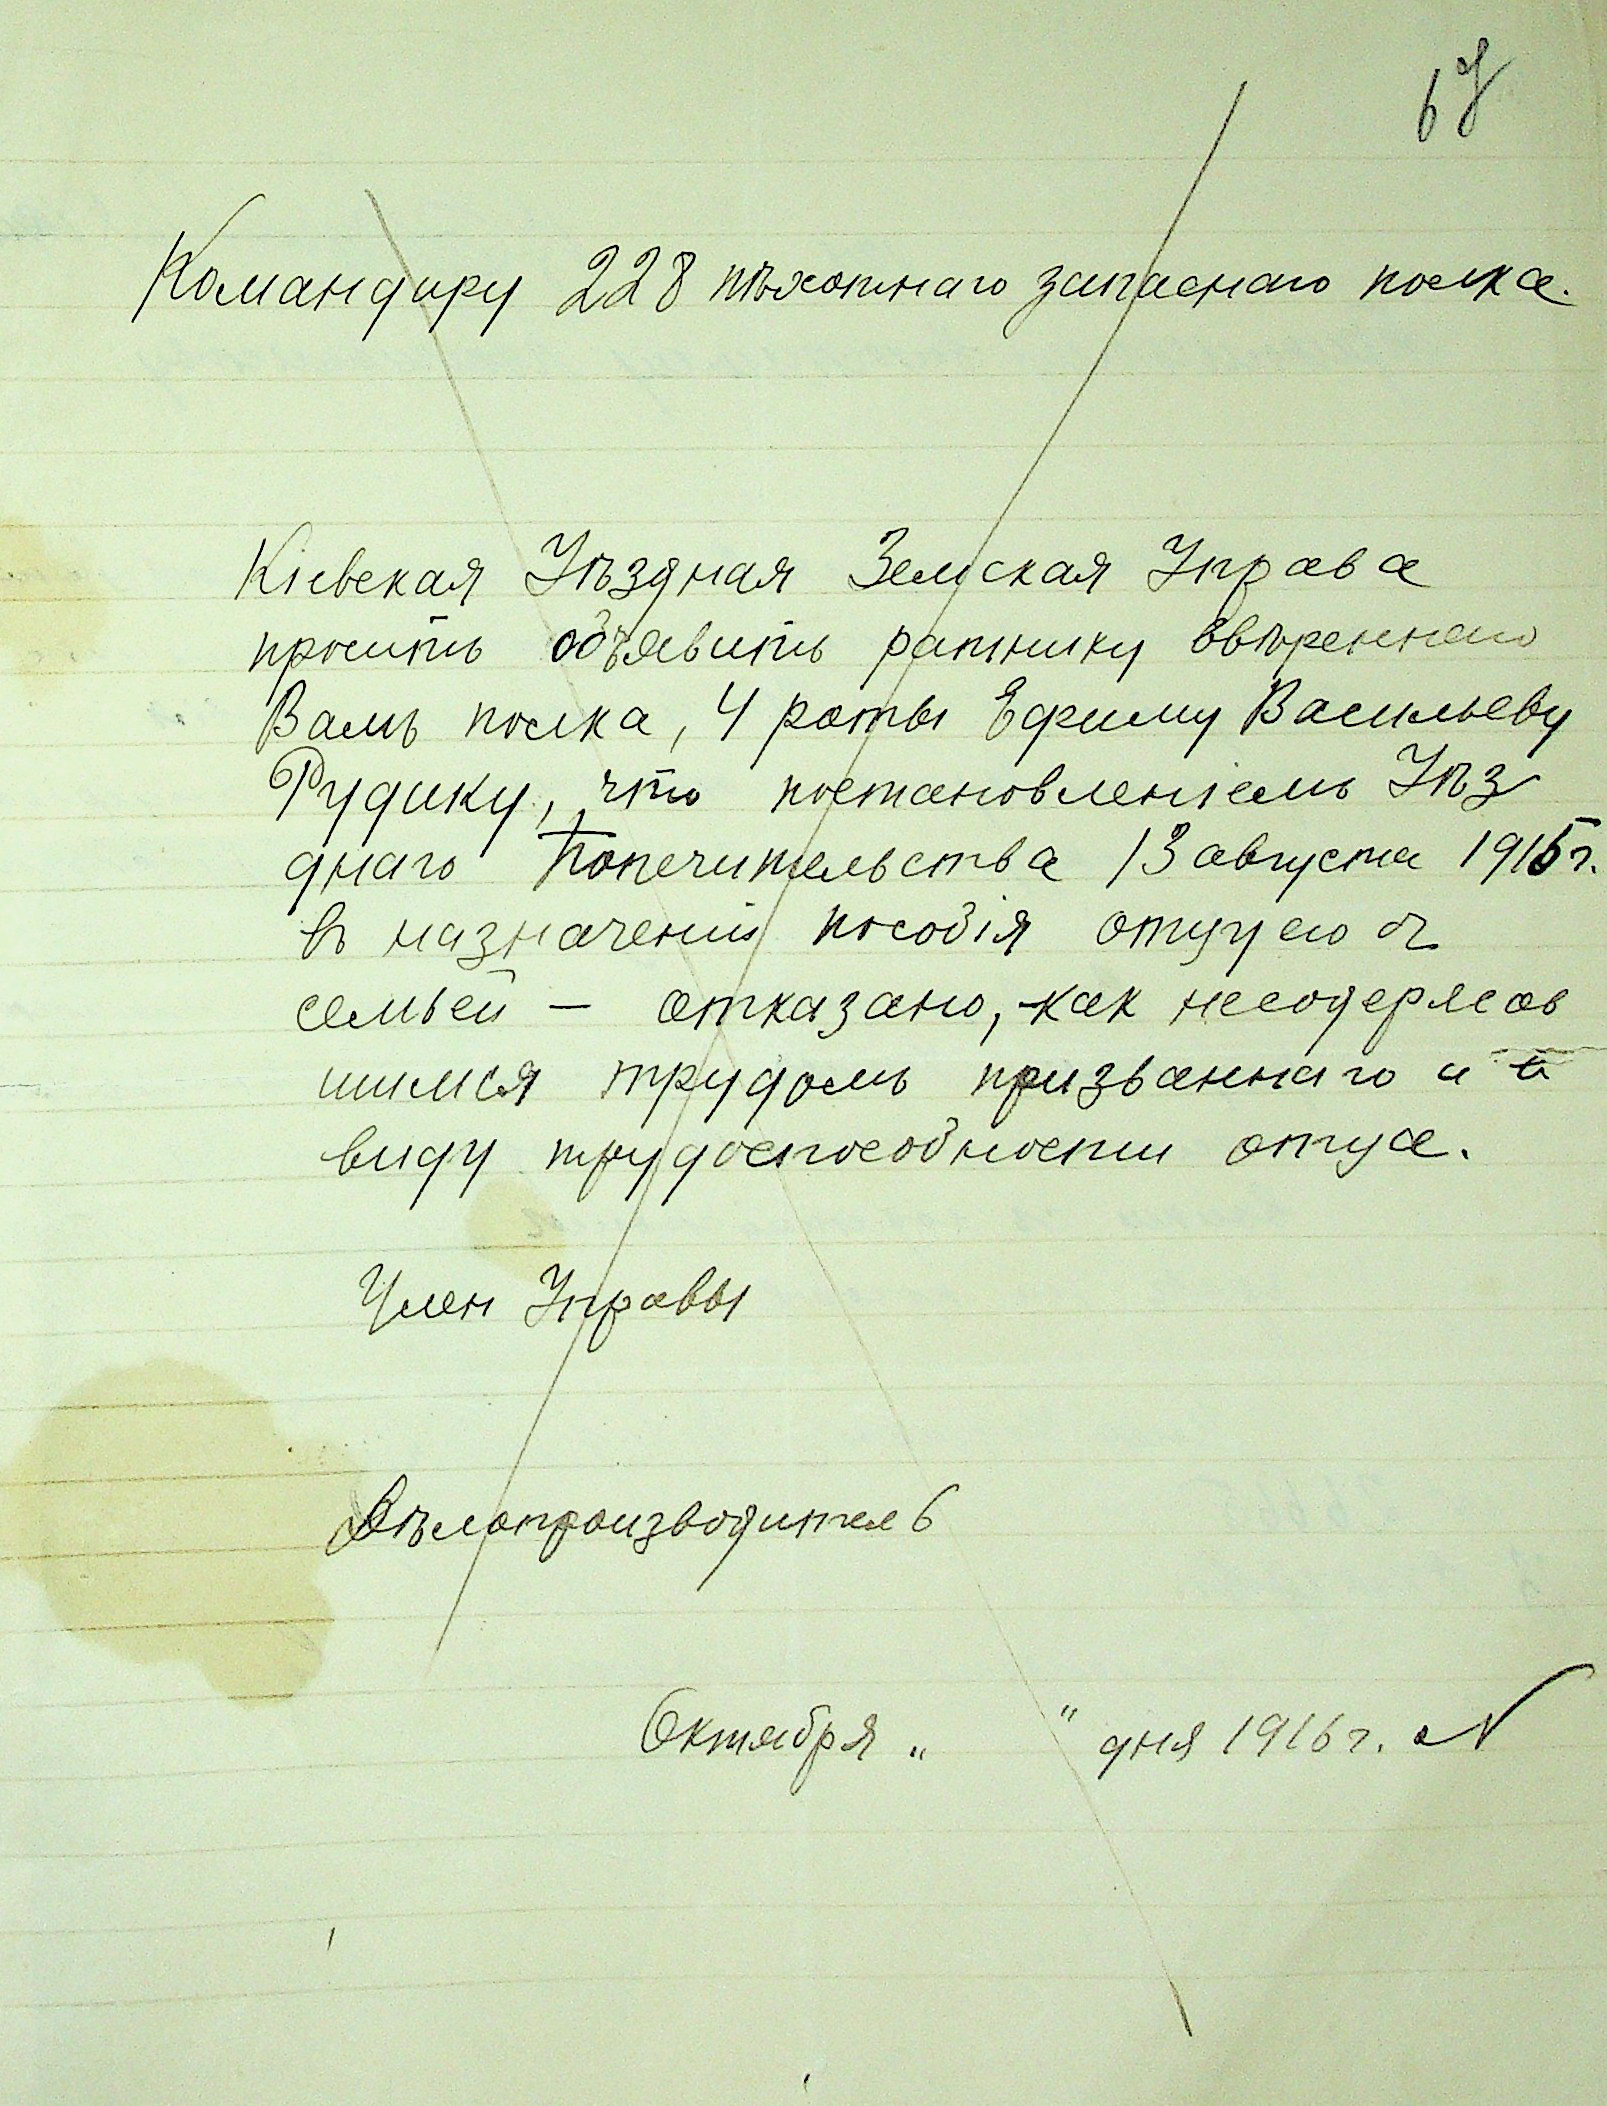 67
Командиру 228 пѣхотнаго запаснаго полка.
Кіевская Уѣздная Земская Управа
проситъ объявить ратнику ввѣреннаго
Вамъ полка, 4 роты Ефиму Васильеву
Рудику, что постановленіемъ Уѣз
днаго Попечительства 13 августа 1915 г.
въ назначеніи пособія отцу его съ
семьей — отказано, как несодержав
шимся трудомъ призваннаго и в
виду трудоспособности отца.
Член Управы
Дѣлопроизводитель
Октября „ " дня 1916 г. №